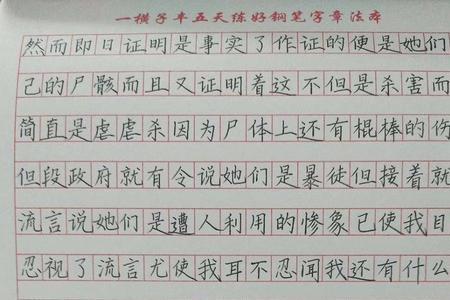 一横子丰五天练好钢笔字章法本
然而即日证明是事实了作证的便是她们
己的尸骸而且又证明着这不但是杀害而
简直是虐虐杀因为尸体上还有棍棒的伤
但段政府就有令说她们是暴徒但接着就
流言说她们是遭人利用的惨象已使我目
忍视了流言尤使我耳不忍闻我还有什么